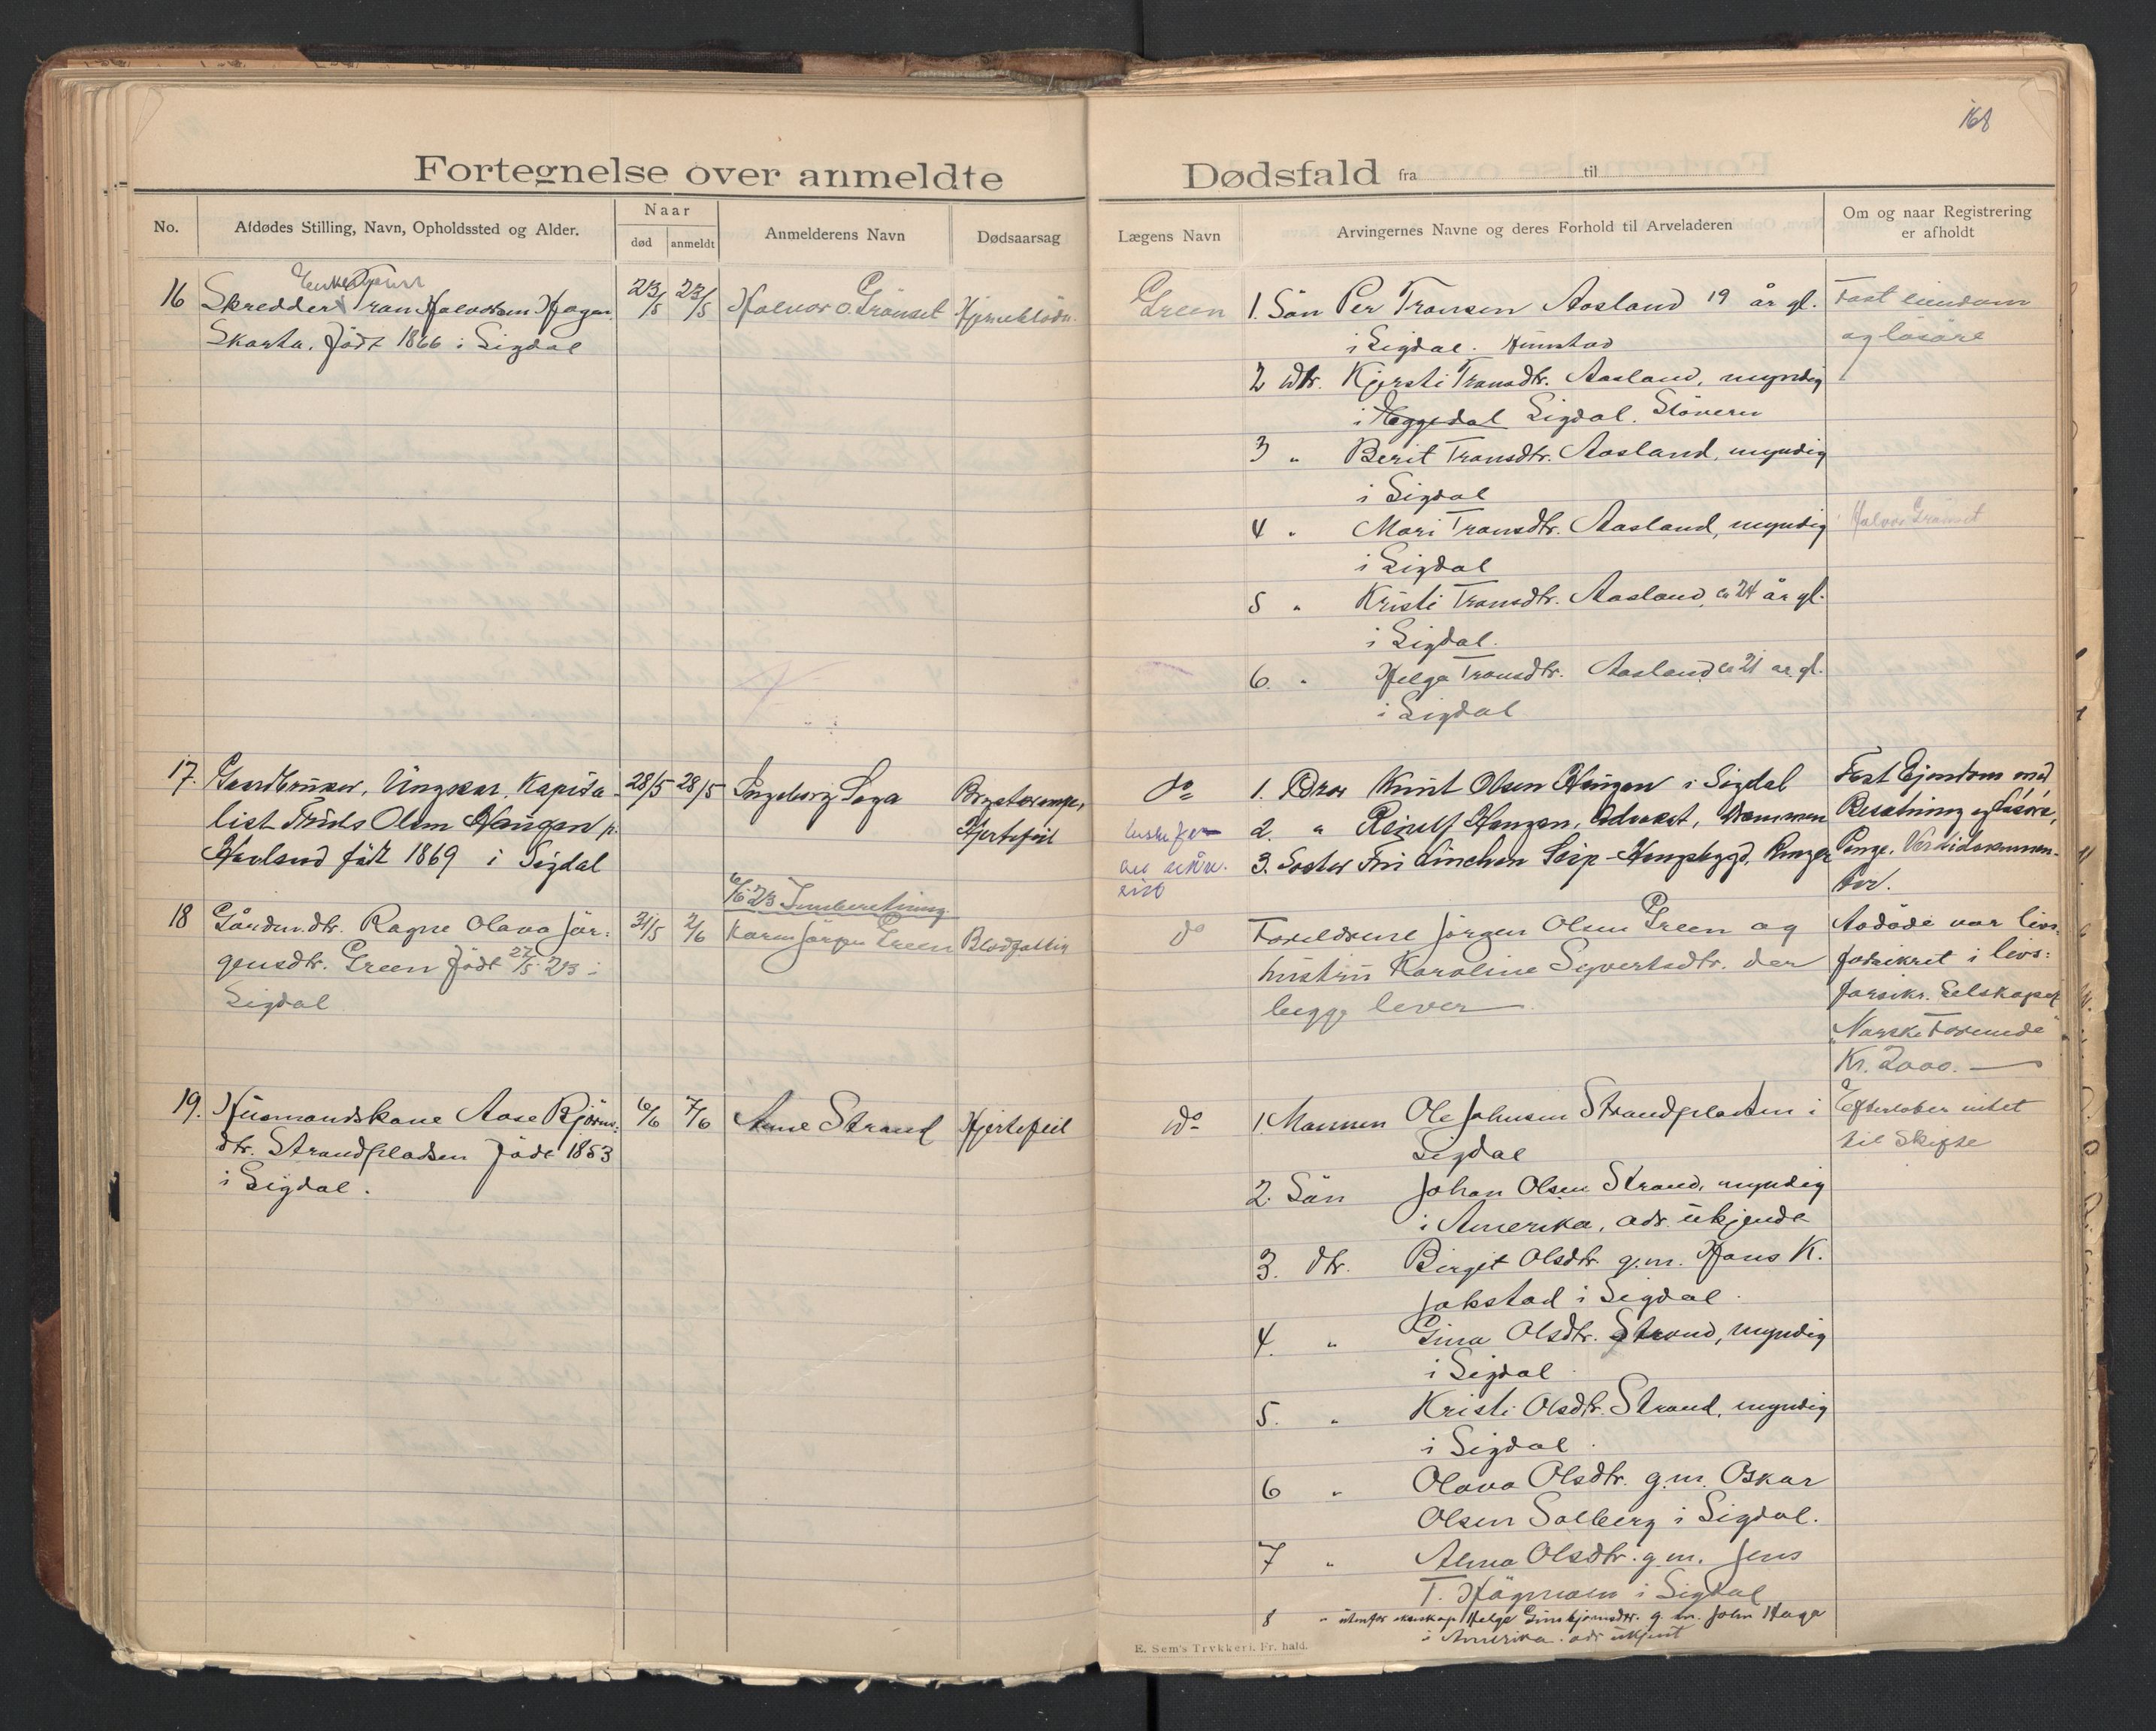 168
Fortegnelse over anmeldte
Dødsfald fra til
No.
Afdødes Stilling, Navn, Opholdssted og Alder.
Naar
død anmeldt
Anmelderens Navn
Dødsaarsag
Lægens Navn
Arvingernes Navne og deres Forhold til Arveladeren
Om og naar Registrering
er afholdt
16 Skredder Tran Halvorsen Hagen 23/5 23/5 Halvor O. Grönset
Skarta. Född 1866 i Sigdal
Green 1. Sön Per Transen Aasland 19 år gl.
i Sigdal.
2 dtr. Kjersti Transdtr. Aasland, myndig
i Heggedal Sigdal.
3 " Berit Transdtr. Aasland, myndig
i Sigdal
4 " Mari Transdtr. Aasland, myndig
i Sigdal
5 " Kristi Transdtr. Aasland, ca 24 år gl.
i Sigdal.
6. " Helga Transdtr. Aasland ca 21 år gl.
i Sigdal
Fast eiendom
og lösöre
Halvor Grönset
17. Gaardbruker, Ungkar, Kapita-
list Truls Olsen Haugen p.
født 1869 i Sigdal
28/5 28/5 Ingeborg Saga
Hjertefeil
do 1. Bror Knut Olsen Haugen i Sigdal
2. " Haugen, Advokat, Drammen
3. Søster
Fast Ejendom med
Besætning og Løsøre,
Penge,
6/6 23 Innberetning
18 Gårdm. dtr. Ragne Olava Jör-
gensdtr. Green Född 27/5 23 i
Sigdal
31/5 2/6 Karen Jörgen Green
do Foreldrene Jörgen Olsen Green og
hustru Karoline Syvertsdtr. der
begge lever
Avdöde var livs-
forsikret i livs-
forsikr. Selskapet
"Norske Forenede"
Kr. 2000.—
19. Husmandskone Aase Björns-
dtr. Strandpladsen Född 1853
i Sigdal.
6/6 7/6 Anne Strand Hjertefeil
do 1. Mannen Ole Johnsen Strandpladsen i
Sigdal
2. Sön Johan Olsen Strand, myndig
i Amerika, adr. ukjendt
3. dtr. Birgit Olsdtr. g.m. Hans K.
Jokstad i Sigdal.
4. " Gina Olsdtr. Strand, myndig
i Sigdal
5. " Kristi Olsdtr. Strand, myndig
i Sigdal.
6 " Olava Olsdtr. g.m. Oskar
Olsen Solberg i Sigdal.
7 " Anna Olsdtr. g.m. Jens
T. i Sigdal
8 " utenfor ekteskap Helga g.m. John Haga
i Amerika. adr ukjent
Efterlater intet
til Skifte
E. Sem's Trykkeri. Fr. hald.